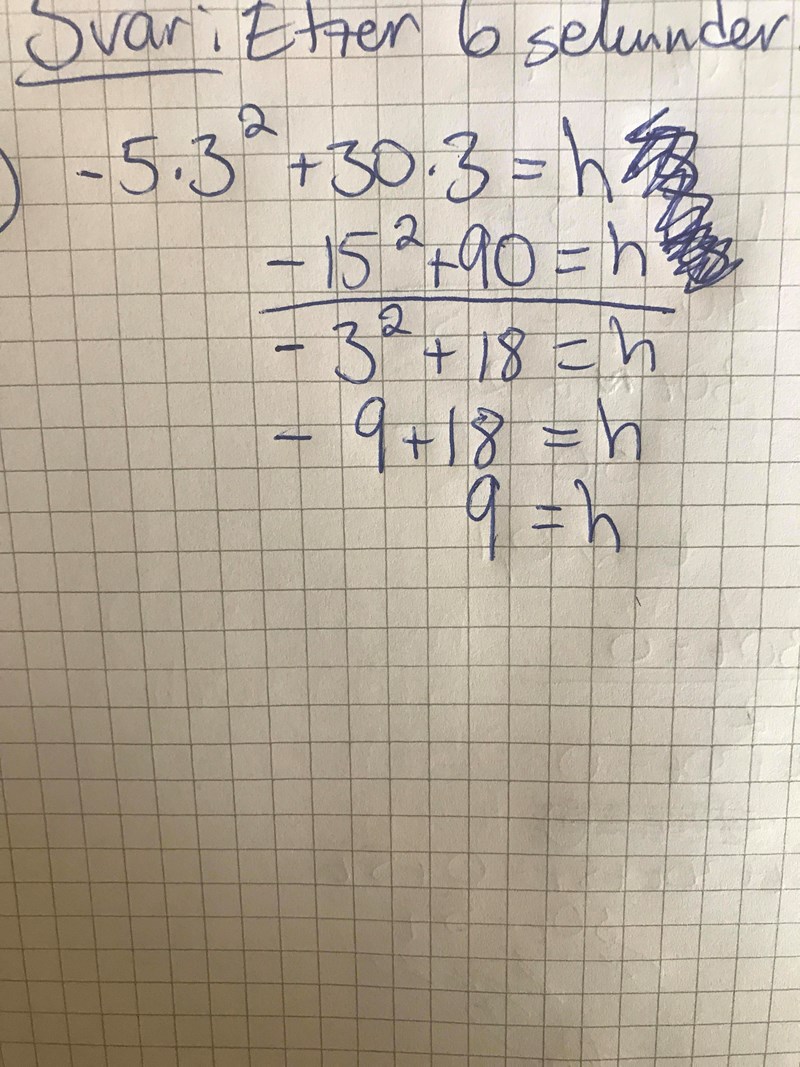 Svar: Efter 6 sekunder
) -5·3² +30·3 = h
-15² +90 = h
- 3² + 18 = h
- 9 +18 = h
9 = h